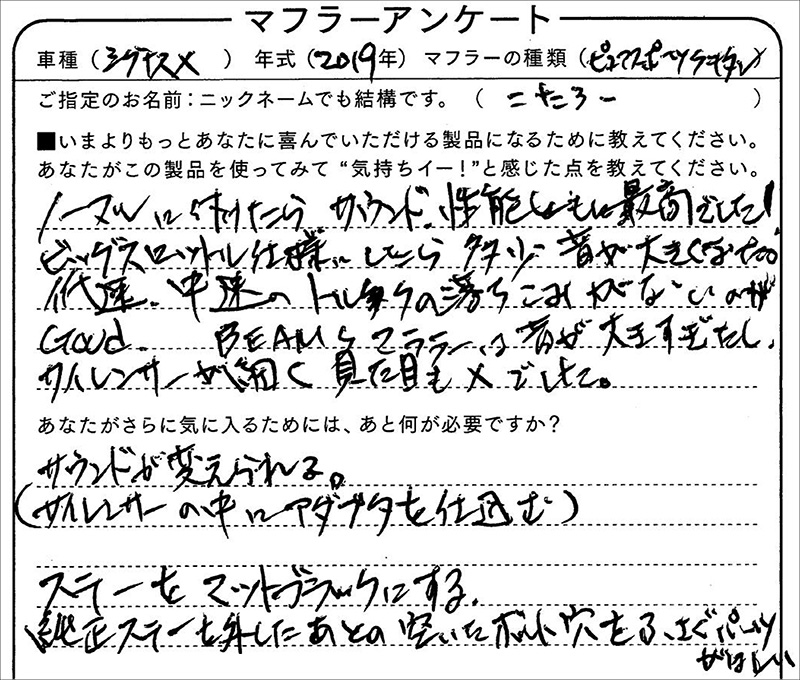 マフラーアンケート
車種（シグナスX） 年式（2019年） マフラーの種類（ピュアスポーツチタン）
ご指定のお名前：ニックネームでも結構です。（こたろー）
■いまよりもっとあなたに喜んでいただける製品になるために教えてください。
あなたがこの製品を使ってみて“気持ちイー！”と感じた点を教えてください。
ノーマルに付けたら サウンド、性能ともに最高でした！
ビッグスロットル仕様にしたら 多少 音が大きくなった。
低速、中速のトルクの落ちこみがないのが
Good. BEAMSマフラーは音が大きすぎたし、
サイレンサーが細く見た目も×でした。
あなたがさらに気に入るためには、あと何が必要ですか？
サウンドが変えられる。
（サイレンサーの中にアダプタを仕込む）
ステーをマットブラックにする。
純正ステーを外したあとの空いたボルト穴をふさぐパーツ
がほしい